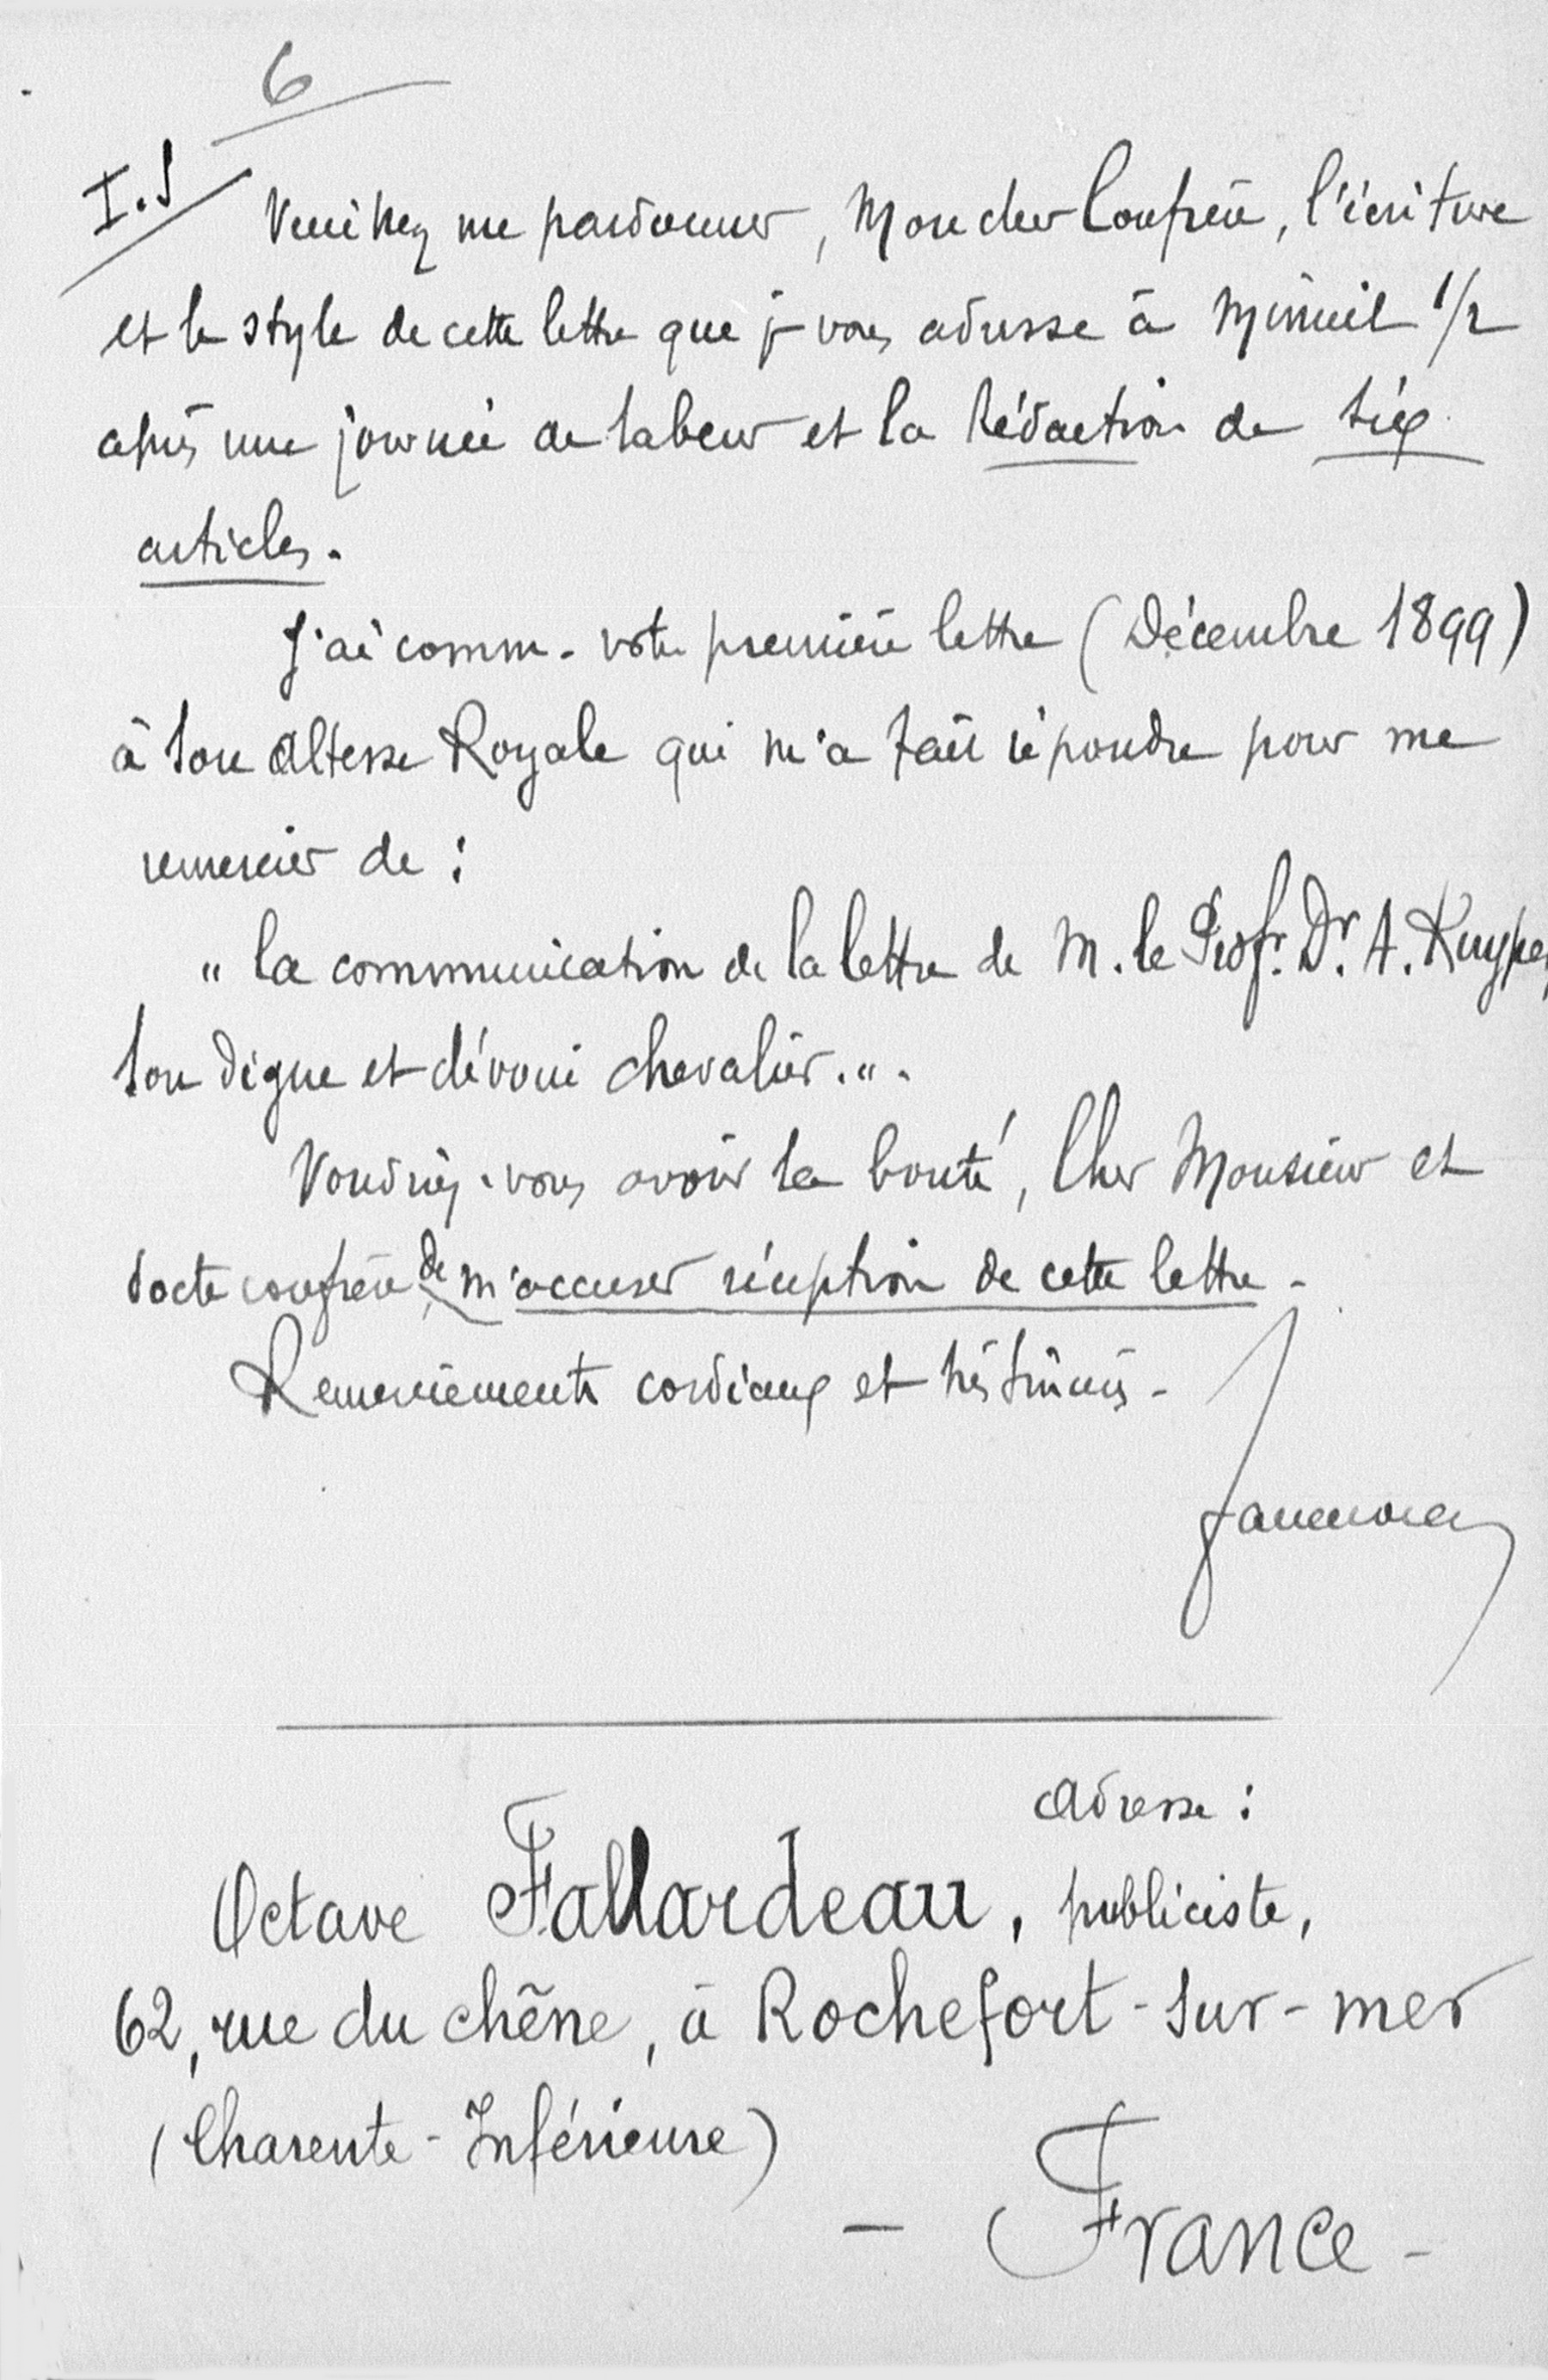 6
Veuillez me pardonner, Mon cher Confrère, l'écriture
et le style de cette lettre que je vous adresse à Minuit 1/2
après une journée de labeur et la Rédaction de six
articles.
J'ai comm. votre première lettre (Décembre 1899)
à Son Altesse Royale qui m'a fait répondre pour me
remercier de :
" la communication de la lettre de M. le Prof. Dr. A. Kuyper,
Son digne et dévoué chevalier. ".
Voudriez-vous avoir la bonté, Cher Monsieur et
docte confrère de m'accuser réception de cette lettre -
Remerciements cordiaux et très sincères -
Adresse :
Octave Fallardeau, publiciste,
62, rue du chêne, à Rochefort-sur-mer
(Charente-Inférieure)
- France -